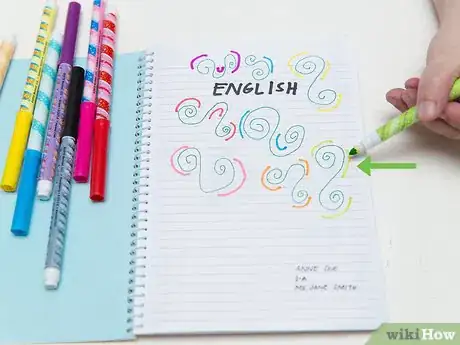 ENGLISH
ANNE SUE
1-A
MS. JANE SMITH
wikiHow